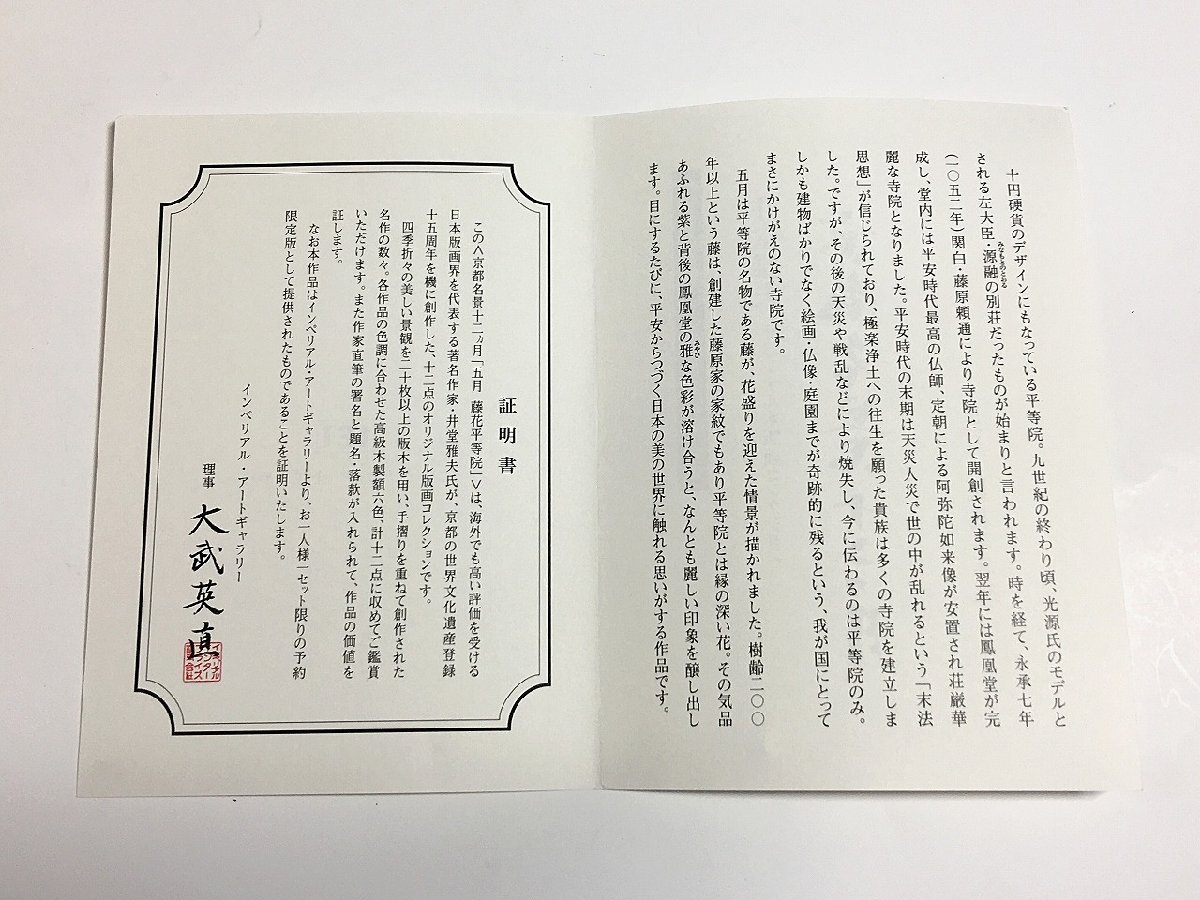 十円硬貨のデザインにもなっている平等院。九世紀の終わり頃、光源氏のモデルと
される左大臣・源融の別荘だったものが始まりと言われます。時を経て、永承七年
みなもとのとおる
(一〇五二年)関白・藤原頼通により寺院として開創されます。翌年には鳳凰堂が完
成し、堂内には平安時代最高の仏師、定朝による阿弥陀如来像が安置され荘厳華
麗な寺院となりました。平安時代の末期は天災人災で世の中が乱れるという「末法
思想」が信じられており、極楽浄土への往生を願った貴族は多くの寺院を建立しま
した。ですが、その後の天災や戦乱などにより焼失し、今に伝わるのは平等院のみ。
しかも建物ばかりでなく絵画・仏像・庭園までが奇跡的に残るという、我が国にとって
まさにかけがえのない寺院です。
五月は平等院の名物である藤が、花盛りを迎えた情景が描かれました。樹齢二〇〇
年以上という藤は、創建した藤原家の家紋でもあり平等院とは縁の深い花。その気品
あふれる紫と背後の鳳凰堂の雅な色彩が溶け合うと、なんとも麗しい印象を醸し出し
みやび
ます。目にするたびに、平安からつづく日本の美の世界に触れる思いがする作品です。
証明書
この〈京都名景十二ヵ月「五月 藤花平等院」〉は、海外でも高い評価を受ける
日本版画界を代表する著名作家・井堂雅夫氏が、京都の世界文化遺産登録
十五周年を機に創作した、十二点のオリジナル版画コレクションです。
四季折々の美しい景観を二十枚以上の版木を用い、手摺りを重ねて創作された
名作の数々。各作品の色調に合わせた高級木製額六色、計十二点に収めてご鑑賞
いただけます。また作家直筆の署名と題名・落款が入れられて、作品の価値を
証します。
なお本作品はインペリアル・アートギャラリーより、お一人様一セット限りの予約
限定版として提供されたものであることを証明いたします。
インペリアル・アートギャラリー
理事 大武英直